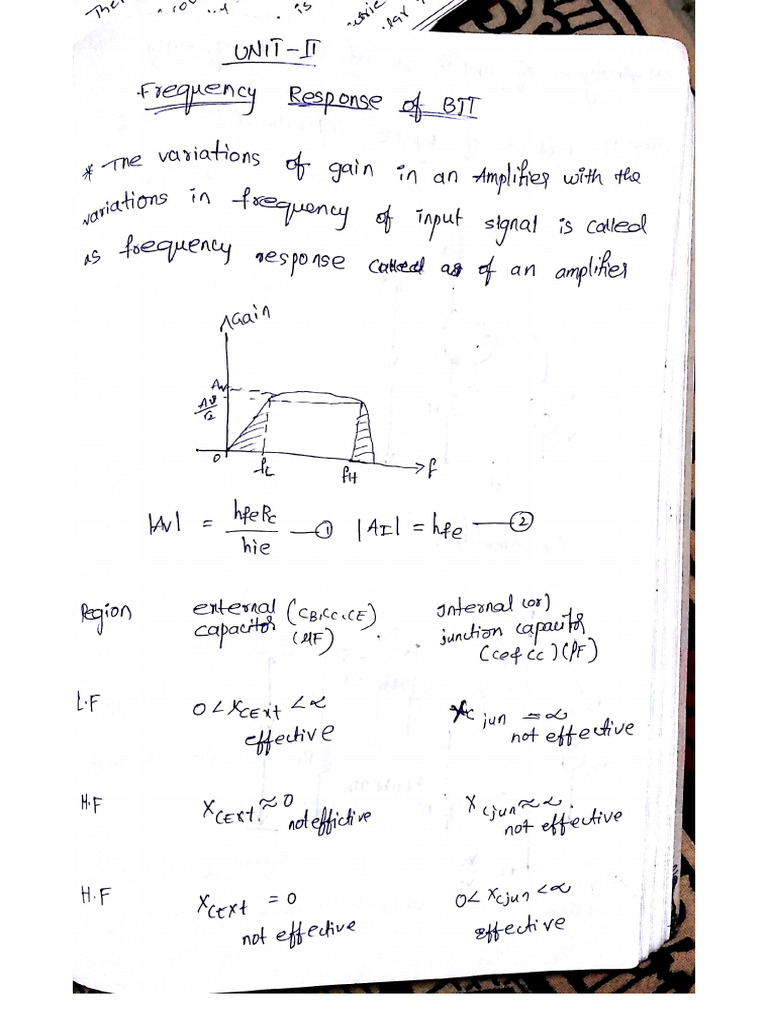 UNIT-II
Frequency Response of BJT
* The variations of gain in an Amplifier with the
variations in frequency of input signal is called
as frequency response called as of an amplifier
Gain
Av
Av/√2
0 fL fH f
|Av| = hfeRc/hie —① |AI| = hfe —②
Region external (CB,CC,CE) Internal (or)
capacitor (μF) junction capacitor
(Ce & Cc) (PF)
L.F 0<XCExt<∝ XC jun = ∝
effective not effective
H.F XCExt. ≈ 0 XCjun ≈ ∝.
not effictive not effective
H.F XCExt = 0 0< XCjun <∝
not effective effective